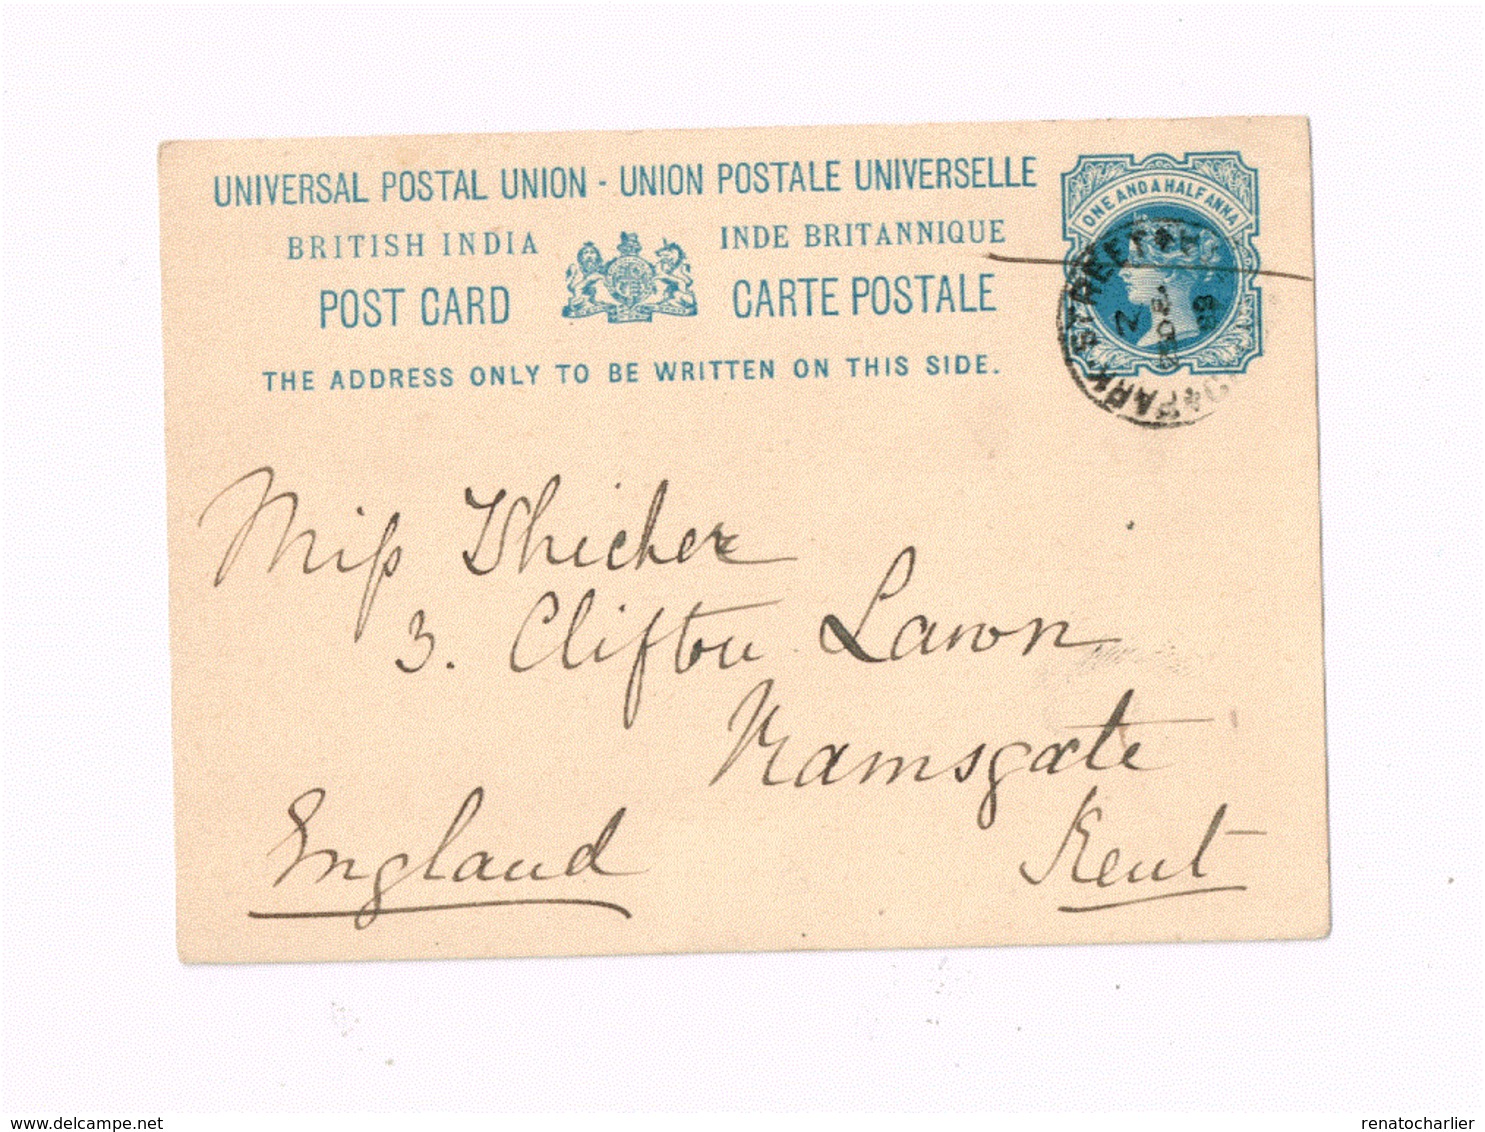 UNIVERSAL POSTAL UNION - UNION POSTALE UNIVERSELLE
ONE AND A HALF ANNA
BRITISH INDIA
INDE BRITANNIQUE
POST CARD
CARTE POSTALE
THE ADDRESS ONLY TO BE WRITTEN ON THIS SIDE.
PARK STREET
Miss Whicher
3. Clifton Lawn
Ramsgate
Kent
England
www.delcampe.net
renatocharlier